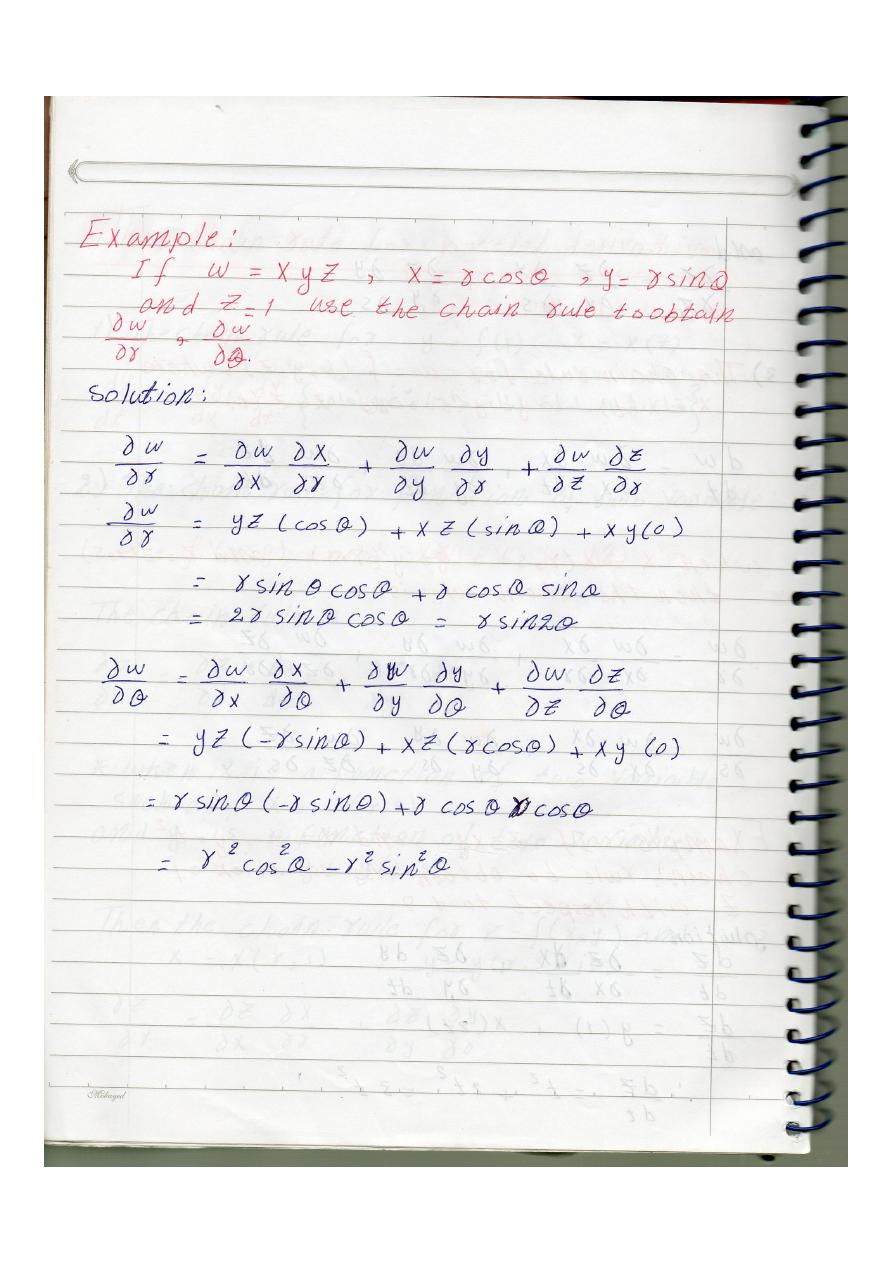 Example:
If w = xyz, x = r cosθ, y = r sinθ
and z=1 use the chain rule to obtain
∂w/∂r, ∂w/∂θ.
Solution:
∂w/∂r = ∂w/∂x ∂x/∂r + ∂w/∂y ∂y/∂r + ∂w/∂z ∂z/∂r
∂w/∂r = yz (cosθ) + xz (sinθ) + xy(0)
= r sinθ cosθ + r cosθ sinθ
= 2r sinθ cosθ = r sin2θ
∂w/∂θ = ∂w/∂x ∂x/∂θ + ∂w/∂y ∂y/∂θ + ∂w/∂z ∂z/∂θ
= yz (-r sinθ) + xz (r cosθ) + xy (0)
= r sinθ (-r sinθ) + r cosθ r cosθ
= r² cos²θ - r² sin²θ
Mohayed